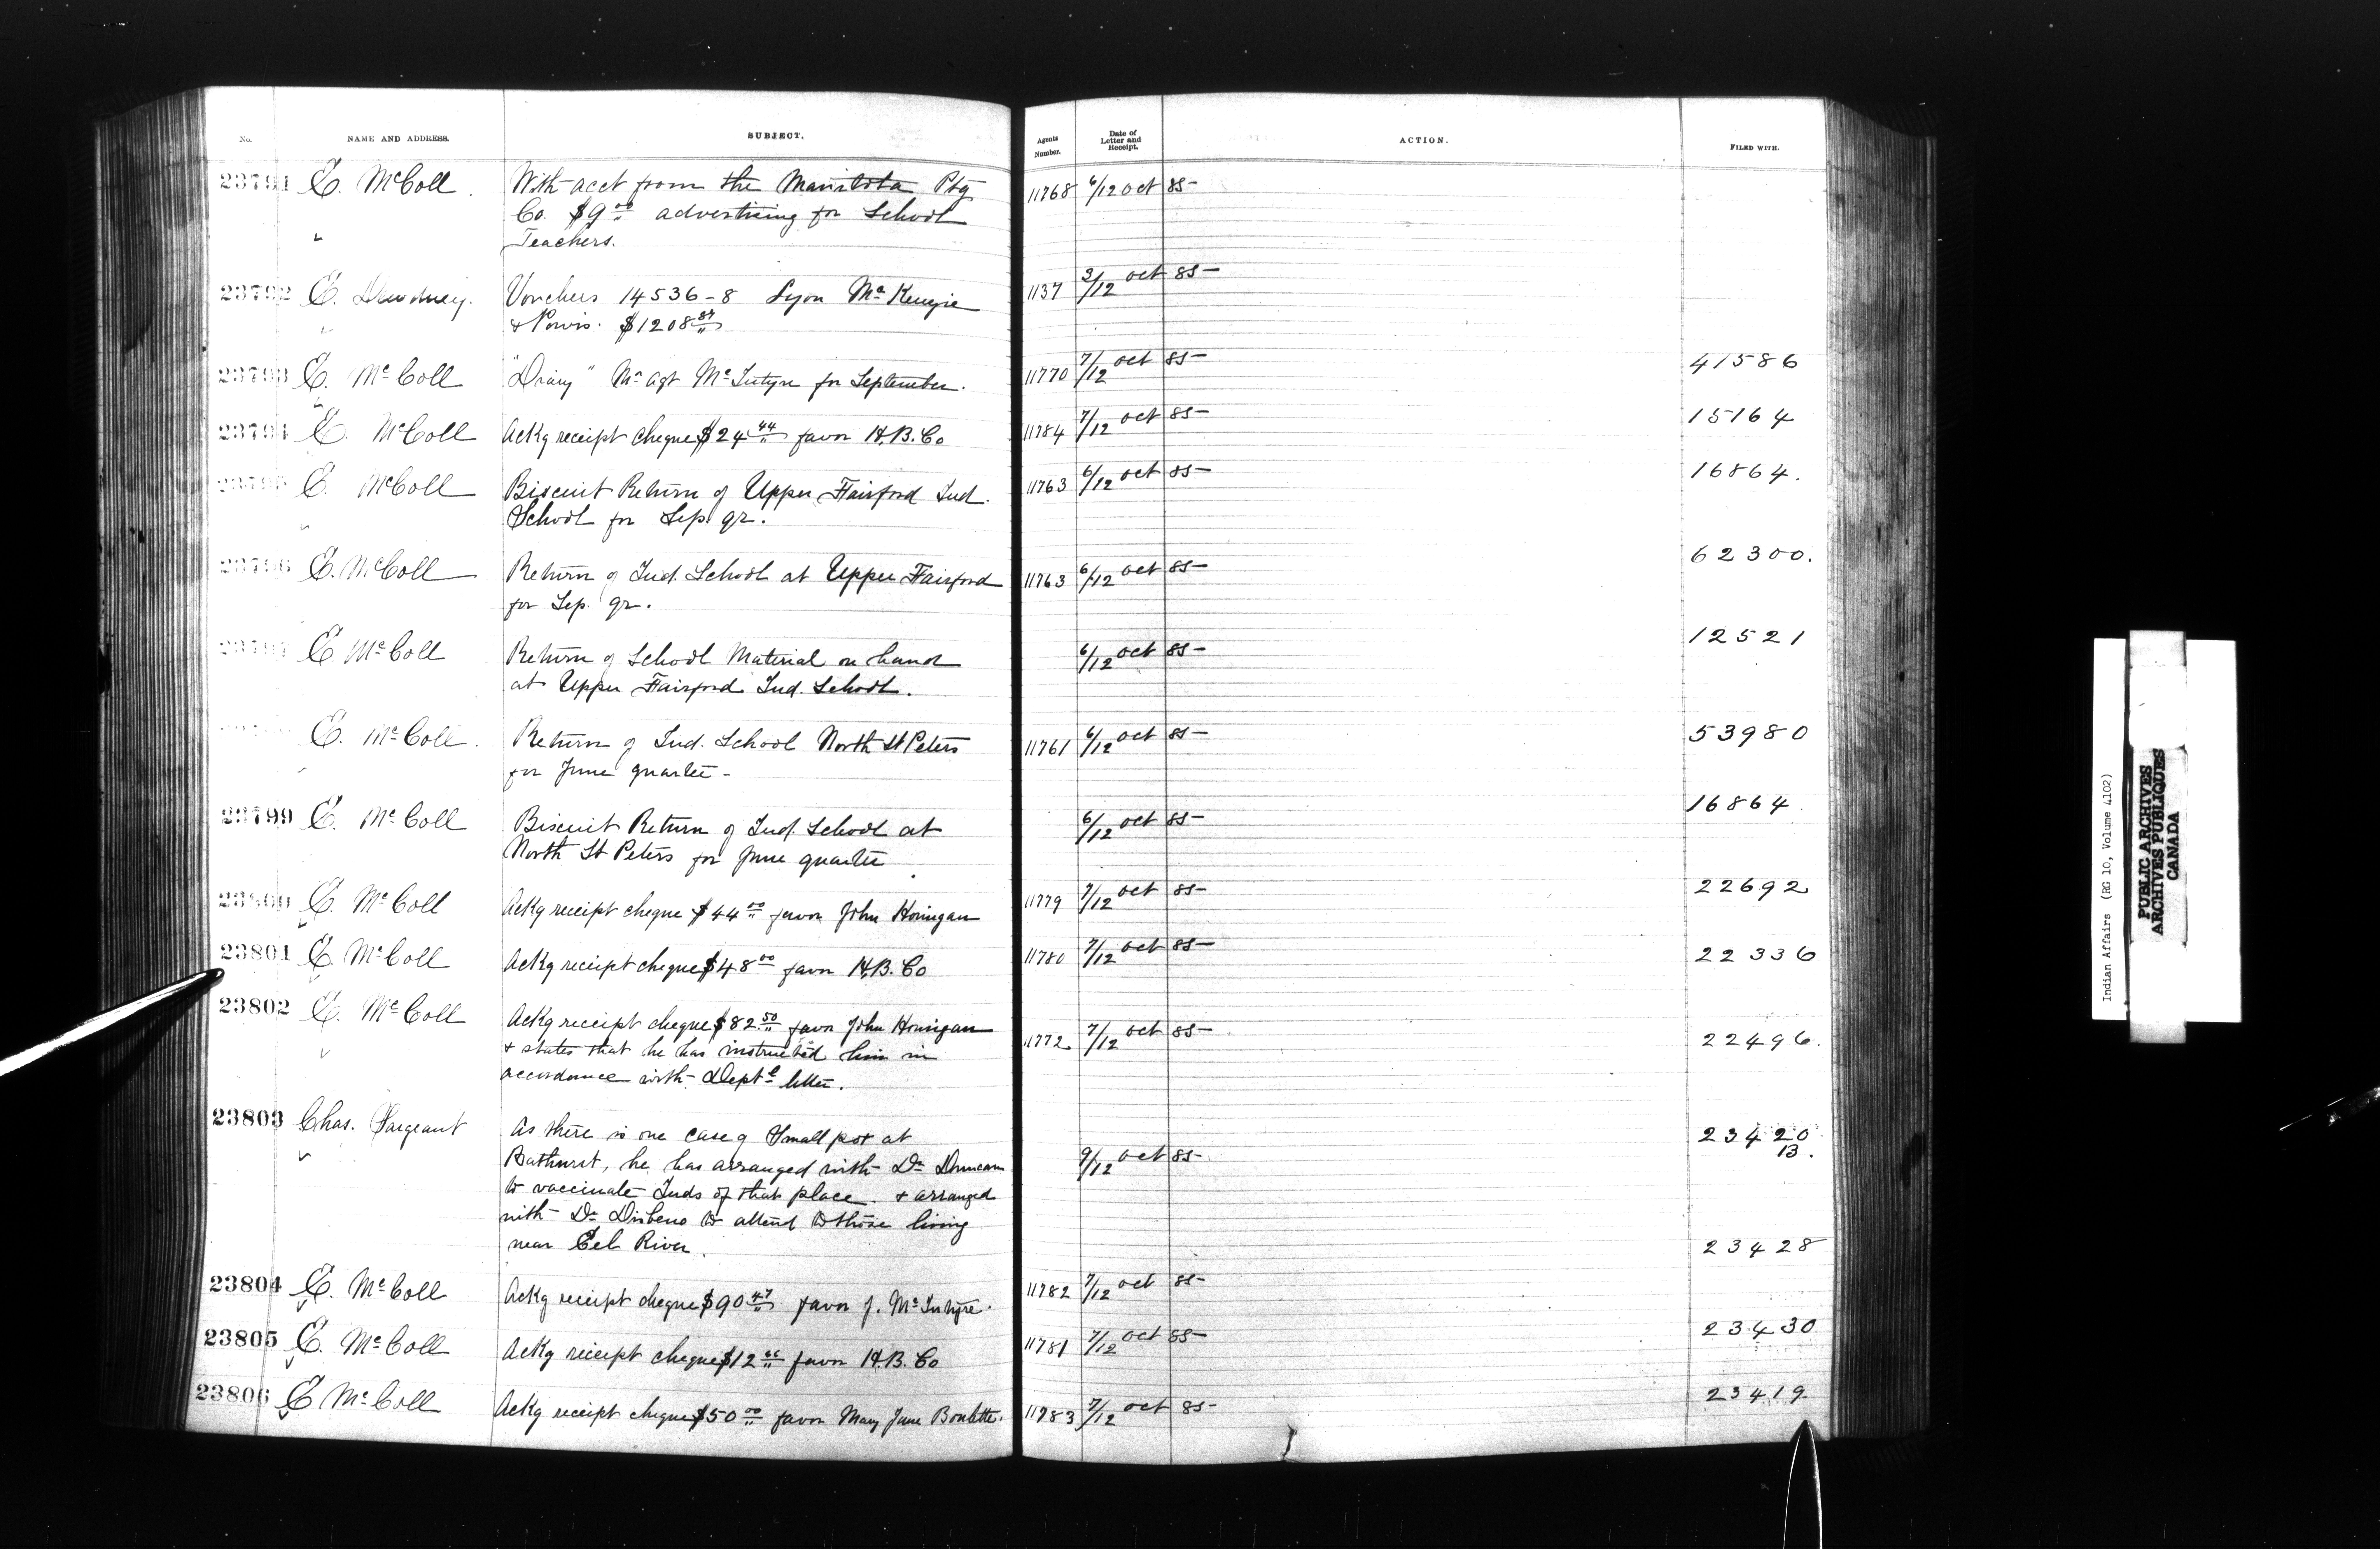 No. NAME AND ADDRESS. SUBJECT. Agents Number. Date of Letter and Receipt. ACTION. FILED WITH.
23791 E. McColl With acct from the Manitoba Ptg 11768 6/12 Oct 85
Co. $9.00 advertising for School
Teachers.
23792 E. Dewdney. Vouchers 14536-8 Lyon McKenzie 1137 3/12 Oct 85
& Powis. $1208.87
23793 E. McColl "Diary" Mr Agt McIntyre for September. 11770 7/12 Oct 85 41586
23794 E. McColl Ackg receipt cheque $24.44 favor H.B. Co 11784 7/12 Oct 85 15164
23795 E. McColl Biscuit Return of Upper Fairford Ind. 11763 6/12 Oct 85 16864.
School for Sep. qr.
23796 E. McColl Return of Ind. School at Upper Fairford 11763 6/12 Oct 85 62300.
for Sep. qr.
23797 E. McColl Return of School Material on hand 6/12 Oct 85 12521
at Upper Fairford Ind. School.
E. McColl. Return of Ind. School North St Peters 11761 6/12 Oct 85 53980
for June quarter
23799 E. McColl Biscuit Return of Ind. School at 6/12 Oct 85 16864.
North St Peters for June quarter
23800 E. McColl Ackg receipt cheque $44.00 favor John Honigan 11779 7/12 Oct 85 22692
23801 E. McColl Ackg receipt cheque $48.00 favor H.B. Co 11780 7/12 Oct 85 22336
23802 E. McColl Ackg receipt cheque $82.50 favor John Honigan 11772 7/12 Oct 85 22496.
& states that he has instructed him in
accordance with Deptl letter.
23803 Chas. Sargeant As there is one case of Small pox at 9/12 Oct 85 23420
Bathurst, he has arranged with Dr Duncan 13.
to vaccinate Inds of that place. & arranged
with Dr to attend to those living
near Eel River.
23804 E. McColl Ackg receipt cheque $90.47 favor J. McIntyre. 11782 7/12 Oct 85 23428
23805 E. McColl Ackg receipt cheque $12.66 favor H.B. Co 11781 7/12 Oct 85 23430
23806 E McColl Ackg receipt cheque $50.00 favor Mary Jane Boulette. 11783 7/12 Oct 85 23419
Indian Affairs (RG 10, Volume 4102)
PUBLIC ARCHIVES
ARCHIVES PUBLIQUES
CANADA